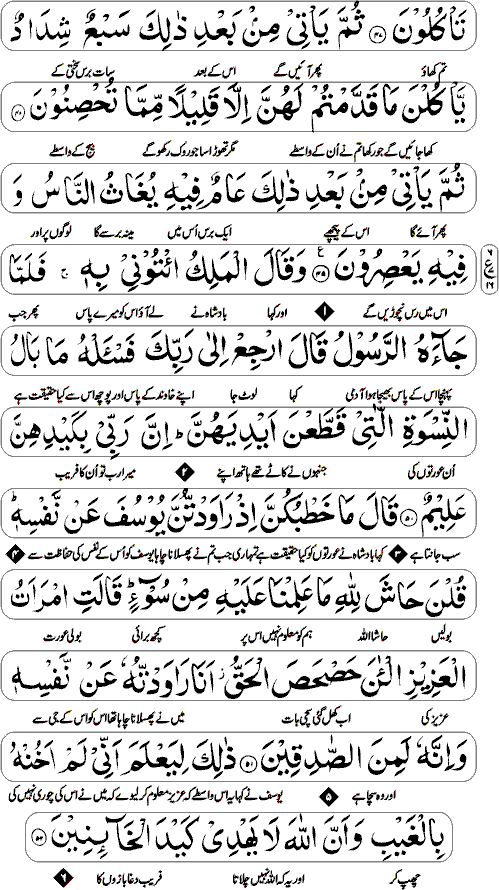 تَاْكُلُوْنَ ﴿۴۷﴾ ثُمَّ یَاْتِیْ مِنْۢ بَعْدِ ذٰلِكَ سَبْعٌ شِدَادٌ
تم کھاؤ پھر آئیں گے اس کے بعد سات برس سختی کے
یَّاْكُلْنَ مَا قَدَّمْتُمْ لَهُنَّ اِلَّا قَلِیْلًا مِّمَّا تُحْصِنُوْنَ ﴿۴۸﴾
کھا جائیں گے جو رکھا تم نے اُن کے واسطے مگر تھوڑا سا جو روک رکھو گے بیج کے واسطے
ثُمَّ یَاْتِیْ مِنْۢ بَعْدِ ذٰلِكَ عَامٌ فِیْهِ یُغَاثُ النَّاسُ وَ
پھر آئے گا اس کے پیچھے ایک برس اُس میں مینہ برسے گا لوگوں پر اور
فِیْهِ یَعْصِرُوْنَ ﴿۴۹﴾ وَقَالَ الْمَلِكُ ائْتُوْنِیْ بِهٖ ۚ فَلَمَّا
اس میں رس نچوڑیں گے ۱ اور کہا بادشاہ نے لے آؤ اس کو میرے پاس پھر جب
جَآءَهُ الرَّسُوْلُ قَالَ ارْجِعْ اِلٰی رَبِّكَ فَسْـَٔلْهُ مَا بَالُ
پہنچا اس کے پاس بھیجا ہوا آدمی کہا لوٹ جا اپنے خاوند کے پاس اور پوچھ اس سے کیا حقیقت ہے
النِّسْوَةِ الّٰتِیْ قَطَّعْنَ اَیْدِیَهُنَّ ؕ اِنَّ رَبِّیْ بِكَیْدِهِنَّ
اُن عورتوں کی جنہوں نے کاٹے تھے ہاتھ اپنے ۲ میرا رب تو اُن کا فریب
عَلِیْمٌ ﴿۵۰﴾ قَالَ مَا خَطْبُكُنَّ اِذْ رَاوَدْتُّنَّ یُوْسُفَ عَنْ نَّفْسِهٖ ؕ
سب جانتا ہے ۳ کہا بادشاہ نے عورتوں کو کیا حقیقت ہے تمہاری جب تم نے پھسلانا چاہا یوسف کو اُس کے نفس کی حفاظت سے ۴
قُلْنَ حَاشَ لِلّٰهِ مَا عَلِمْنَا عَلَیْهِ مِنْ سُوْٓءٍ ؕ قَالَتِ امْرَاَتُ
بولیں حاشا للہ ہم کو معلوم نہیں اس پر کچھ برائی بولی عورت
الْعَزِیْزِ الْـٰٔنَ حَصْحَصَ الْحَقُّ ؗ اَنَا رَاوَدْتُّهٗ عَنْ نَّفْسِهٖ
عزیز کی اب کھل گئی سچی بات میں نے پھسلانا چاہا تھا اس کو اس کے جی سے
وَاِنَّهٗ لَمِنَ الصّٰدِقِیْنَ ﴿۵۱﴾ ذٰلِكَ لِیَعْلَمَ اَنِّیْ لَمْ اَخُنْهُ
اور وہ سچا ہے ۵ یوسف نے کہا یہ اس واسطے کہ عزیز معلوم کر لیوے کہ میں نے اس کی چوری نہیں کی
بِالْغَیْبِ وَاَنَّ اللّٰهَ لَا یَهْدِیْ كَیْدَ الْخَآئِنِیْنَ ﴿۵۲﴾
چھپ کر اور یہ کہ اللہ نہیں چلاتا فریب دغابازوں کا ۶